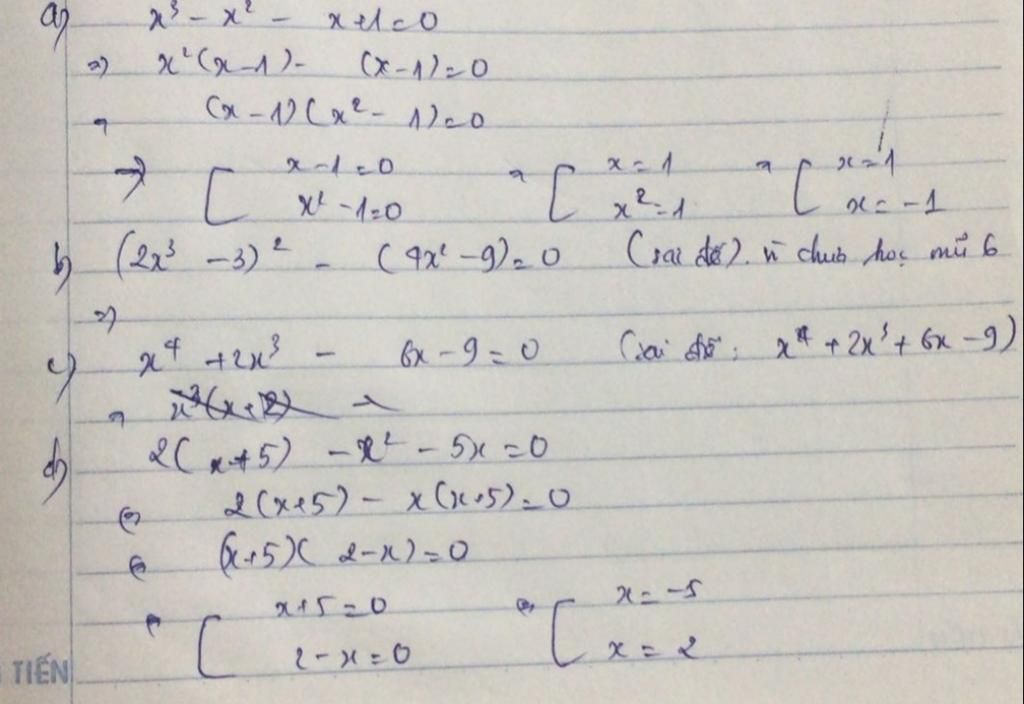 a) x³ - x² - x+1=0
=> x²(x-1) - (x-1)=0
(x-1)(x² - 1)=0
=> [ x-1=0 [ x=1 [ x=1
x² -1=0 x²=1 x=-1
b) (2x³ -3)² - (4x² -9)=0 (sai đề). vì chưa học mũ 6
=>
c) x⁴ +2x³ - 6x-9=0 (sai đề: x⁴+2x³+6x-9)
x³(x+2) -
d) 2(x+5) -x² -5x=0
⇔ 2(x+5) - x(x+5)=0
⇔ (x+5)(2-x)=0
⇔ [ x+5=0 ⇔ [ x=-5
2-x=0 x=2
TIẾN